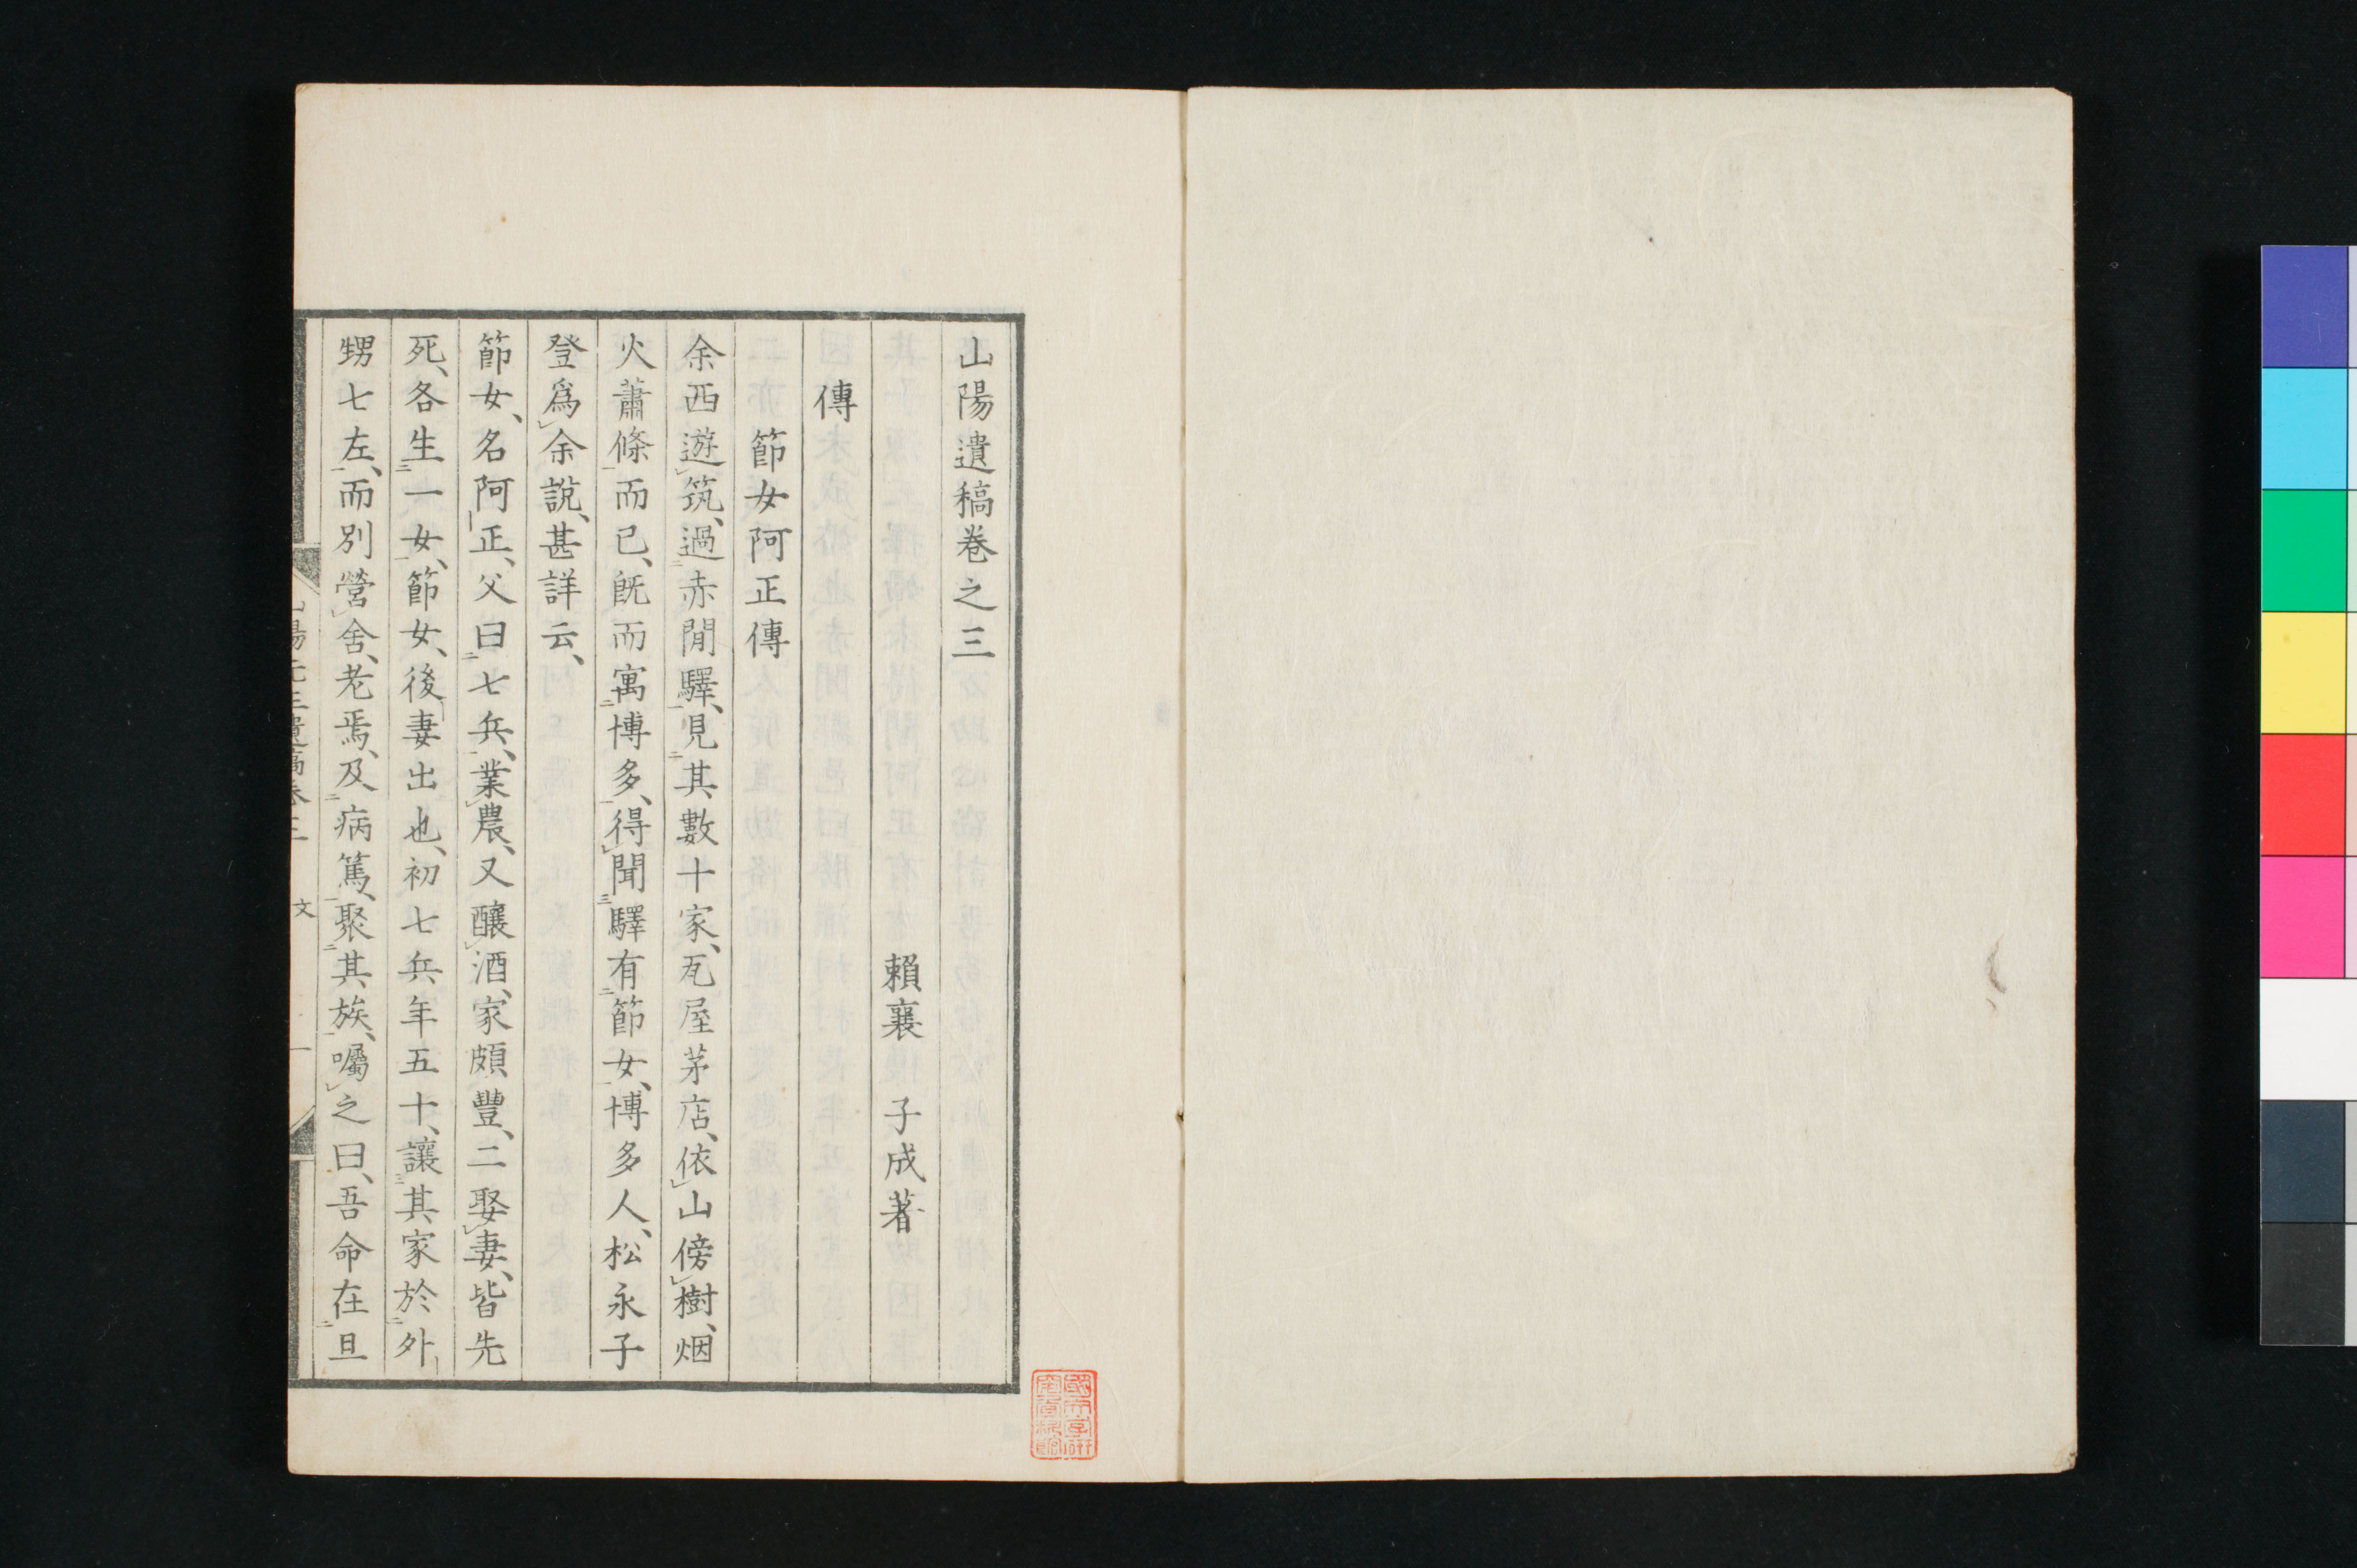 山陽遺稿卷之三
賴襄 子成著
傳
節女阿正傳
余西遊筑、過赤間驛、見其數十家、瓦屋茅店、依山傍樹、烟
火蕭條而已、既而寓博多、得聞驛有節女、博多人、松永子
登爲余說、甚詳云、
節女、名阿正、父曰七兵、業農、又釀酒、家頗豐、二娶妻、皆先
死、各生一女、節女、後妻出也、初七兵年五十、讓其家於外
甥七左、而別營舍、老焉、及病篤、聚其族、囑之曰、吾命在旦
文
一